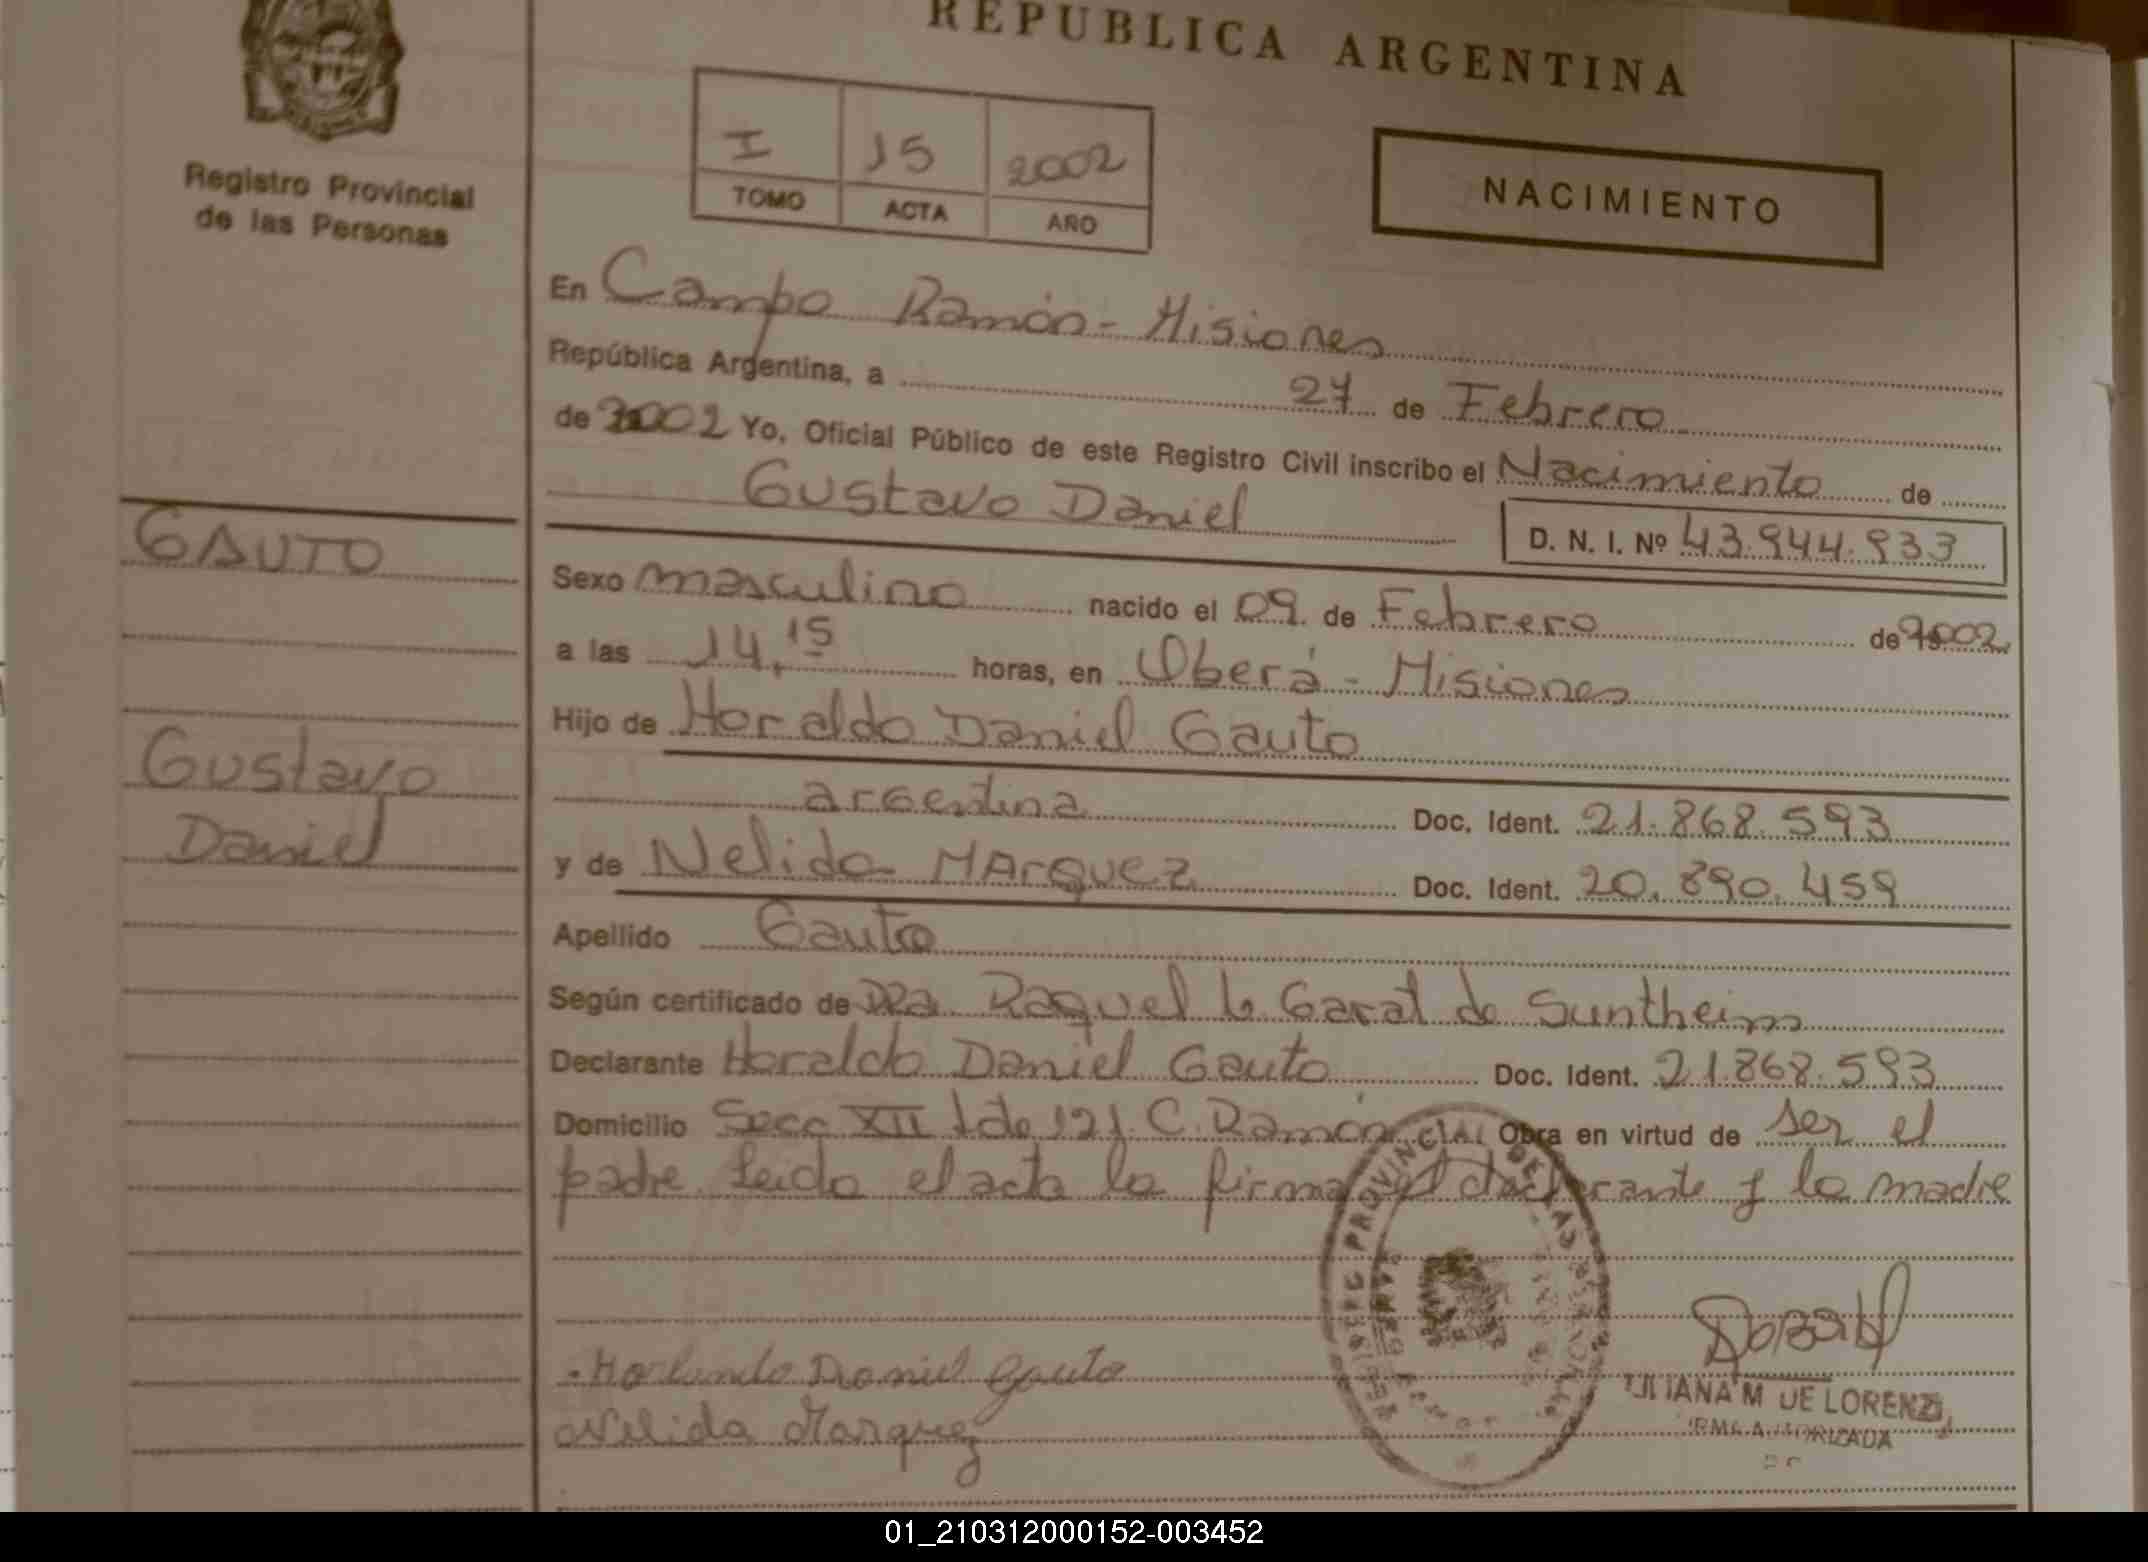 REPUBLICA ARGENTINA
Registro Provincial
de las Personas
I 15 2002
TOMO ACTA AÑO
NACIMIENTO
En Campo Ramón - Misiones
República Argentina, a 27 de Febrero
de 2002 Yo, Oficial Público de este Registro Civil inscribo el Nacimiento de
Gustavo Daniel
D. N. I. Nº 43.944.933
GAUTO
Gustavo
Daniel
Sexo masculino nacido el 09 de Febrero de 2002
a las 14,15 horas, en Oberá - Misiones
Hijo de Horaldo Daniel Gauto
argentina Doc. Ident. 21.868.593
y de Nelida MArquez Doc. Ident. 20.890.459
Apellido Gauto
Según certificado de DRa. Raquel Garat de Suntheim
Declarante Horaldo Daniel Gauto Doc. Ident. 21.868.593
Domicilio Secc XII Lde 121 C. Ramón Obra en virtud de ser el
padre. Leida el acta la firma el declarante y la madre
Horlando Daniel Gauto
Nelida Marquez
LILIANA M DE LORENZI
FIRMA AUTORIZADA
01_210312000152-003452